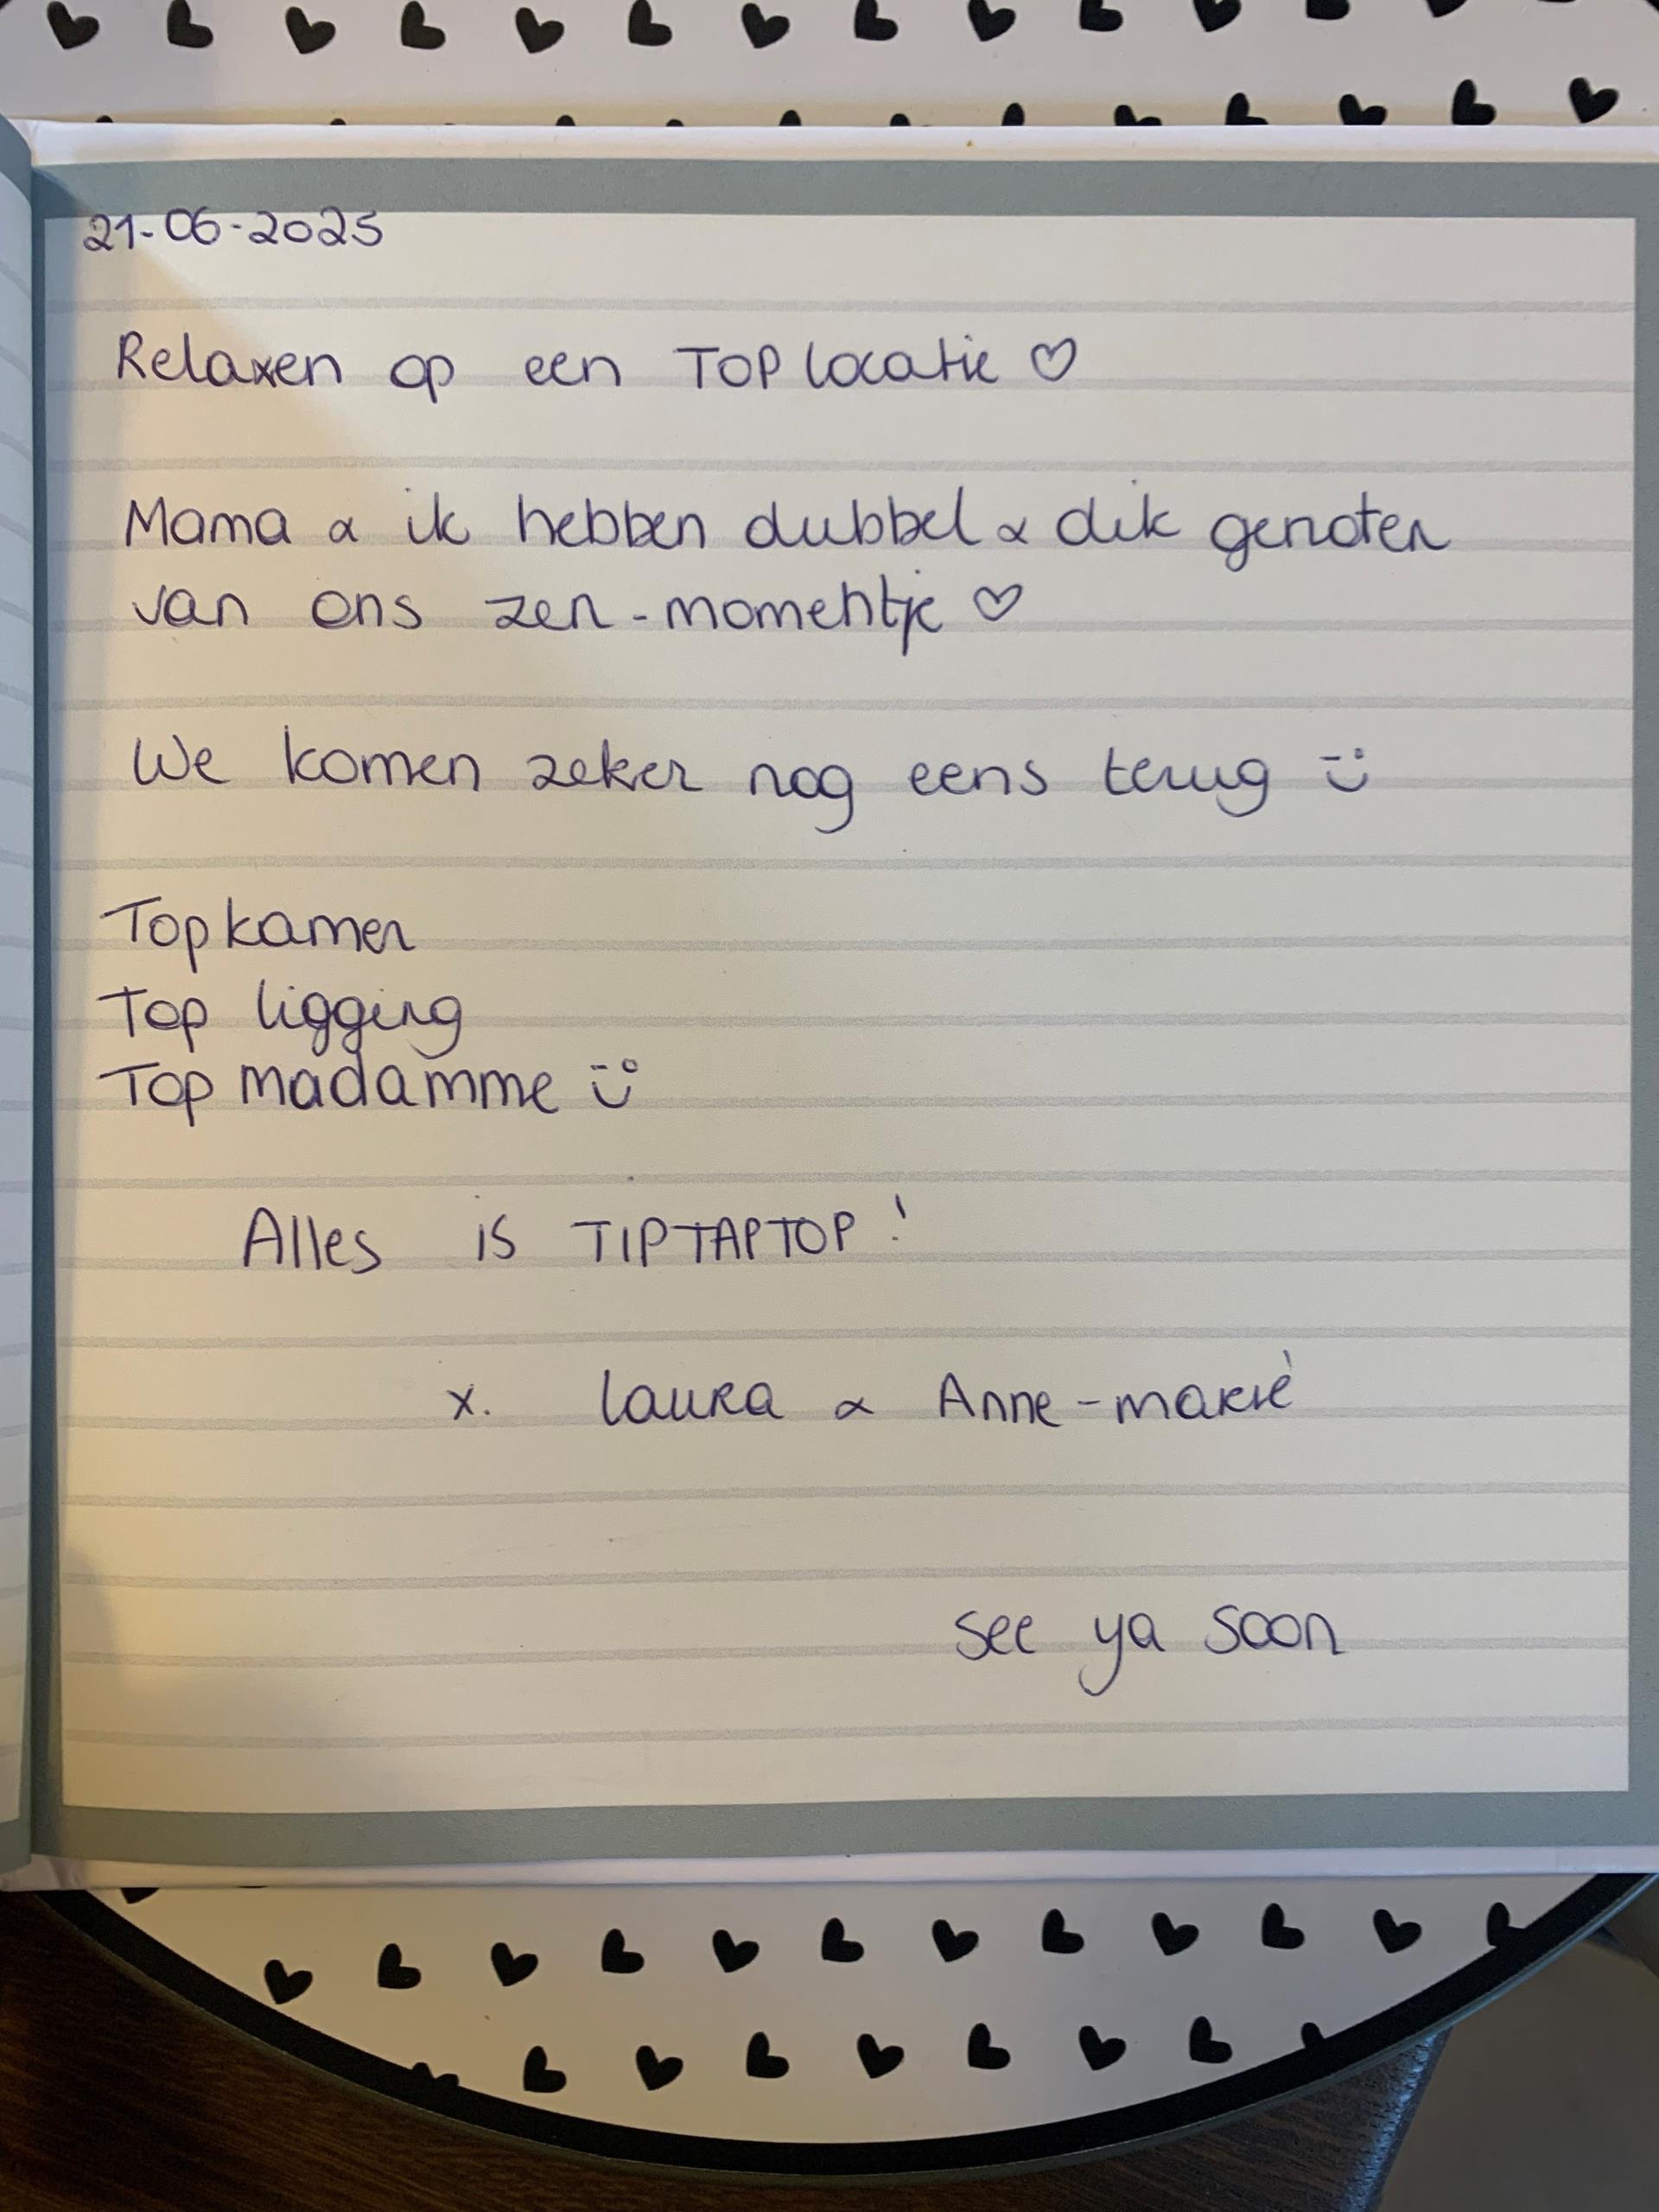 21-06-2025
Relaxen op een TOP locatie ♡
Mama & ik hebben dubbel & dik genoten
van ons zen-momentje ♡
We komen zeker nog eens terug :)
Topkamer
Top ligging
Top madamme :)
Alles is TIPTAPTOP!
x. Laura & Anne-marie
see ya soon